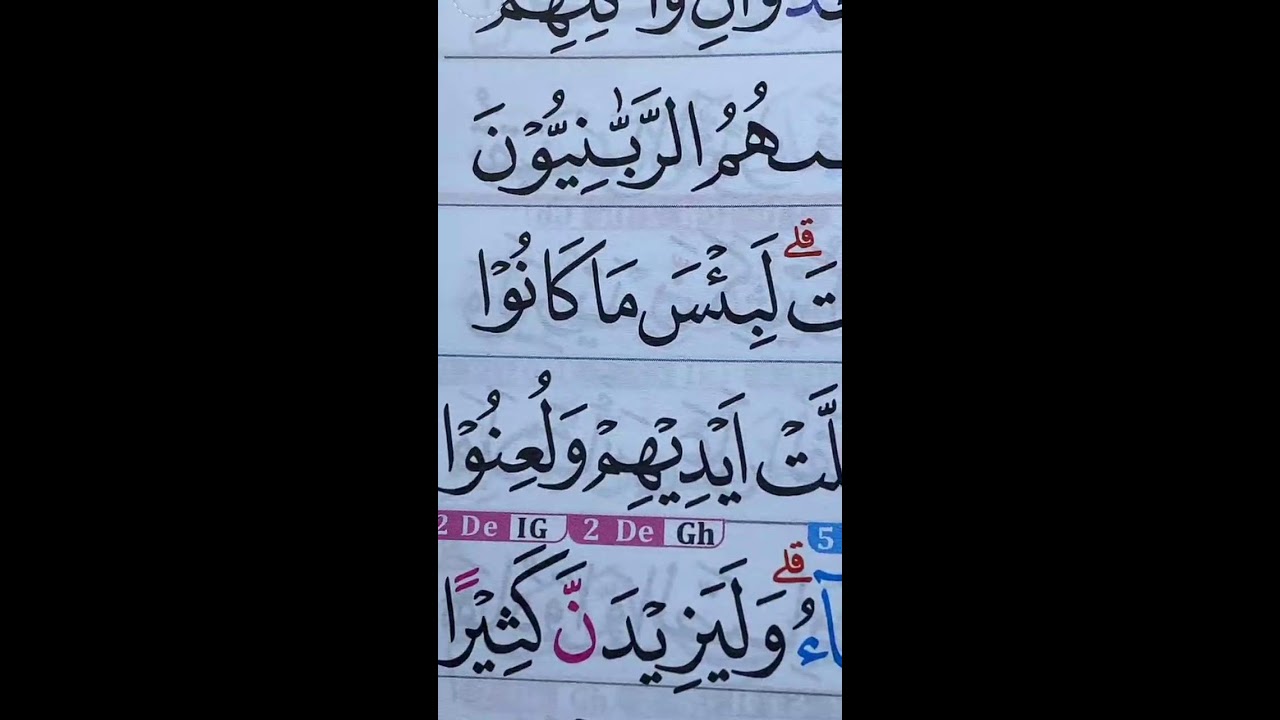 وَاَكْلِهِمُ
هُمُ الرَّبّٰنِيُّوْنَ
قلے
لَبِئْسَ مَا كَانُوْا
اَيْدِيْهِمْ وَلُعِنُوْا
5 2 De Gh 2 De IG
قلے
وَلَيَزِيْدَنَّ كَثِيْرًا